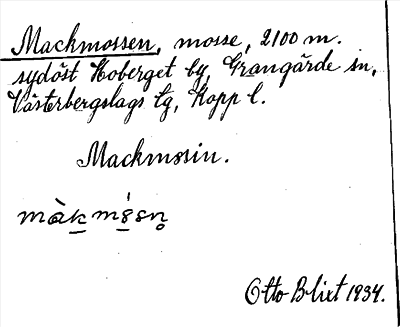 Mackmossen, mosse, 2100 m.
sydöst Hoberget by, Grangärde sn,
Västerbergslags tg, Kopp l.
Mackmosin.
màk mǿsn̥
Otto Blixt 1934.